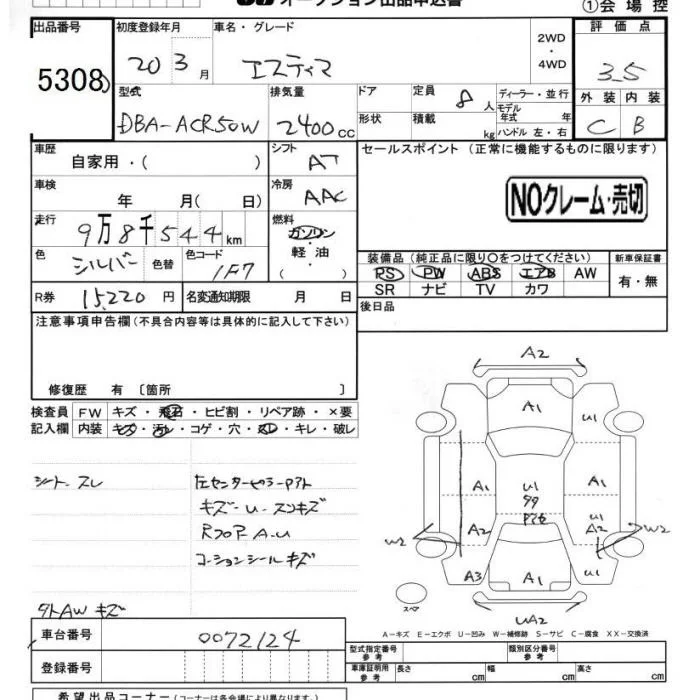 ①会場控
出品番号 初度登録年月 車名・グレード 評価点
5308 20 3月 エスティマ 2WD・4WD 3.5
型式 排気量 ドア 定員 8人 ディーラー・並行 外装 内装
DBA-ACR50W 2400cc 形状 積載 kg モデル年式 年 C B
ハンドル 左・右
車歴 シフト セールスポイント (正常に機能するものに限ります)
自家用・( ) AT
車検 冷房
年 月( 日) AAC NOクレーム・売切
走行 9万8千544km 燃料
ガソリン
軽油
( )
色 シルバー 色替 色コード 1F7
装備品 (純正品に限り○をつけてください) 新車保証書
PS PW ABS エアB AW 有・無
SR ナビ TV カワ
R券 15,220円 名変通知期限 月 日 後日品
注意事項申告欄 (不具合内容等は具体的に記入して下さい)
修復歴 有 〔箇所 〕
検査員 FW キズ・飛石・ヒビ割・リペア跡・×要
記入欄 内装 キズ・汚レ・コゲ・穴・スレ・キレ・破レ
シート、スレ
左センターピラーアト
キズ-U-スンキズ
RフロアA.U
コーションシールキズ
タトAWキズ
A2
A1 U1
A1 U1 A1
A2 U1 A2
W2 W2
A3 A1 U1
スペア UA2
A-キズ E-エクボ U-凹み W-補修跡 S-サビ C-腐食 XX-交換済
車台番号 0072124
登録番号
型式指定番号 参考 類別区分番号 参考
車庫証明用 参考 長さ cm 幅 cm 高さ cm
希望出品コーナー (コーナーは各会場により異なります。)